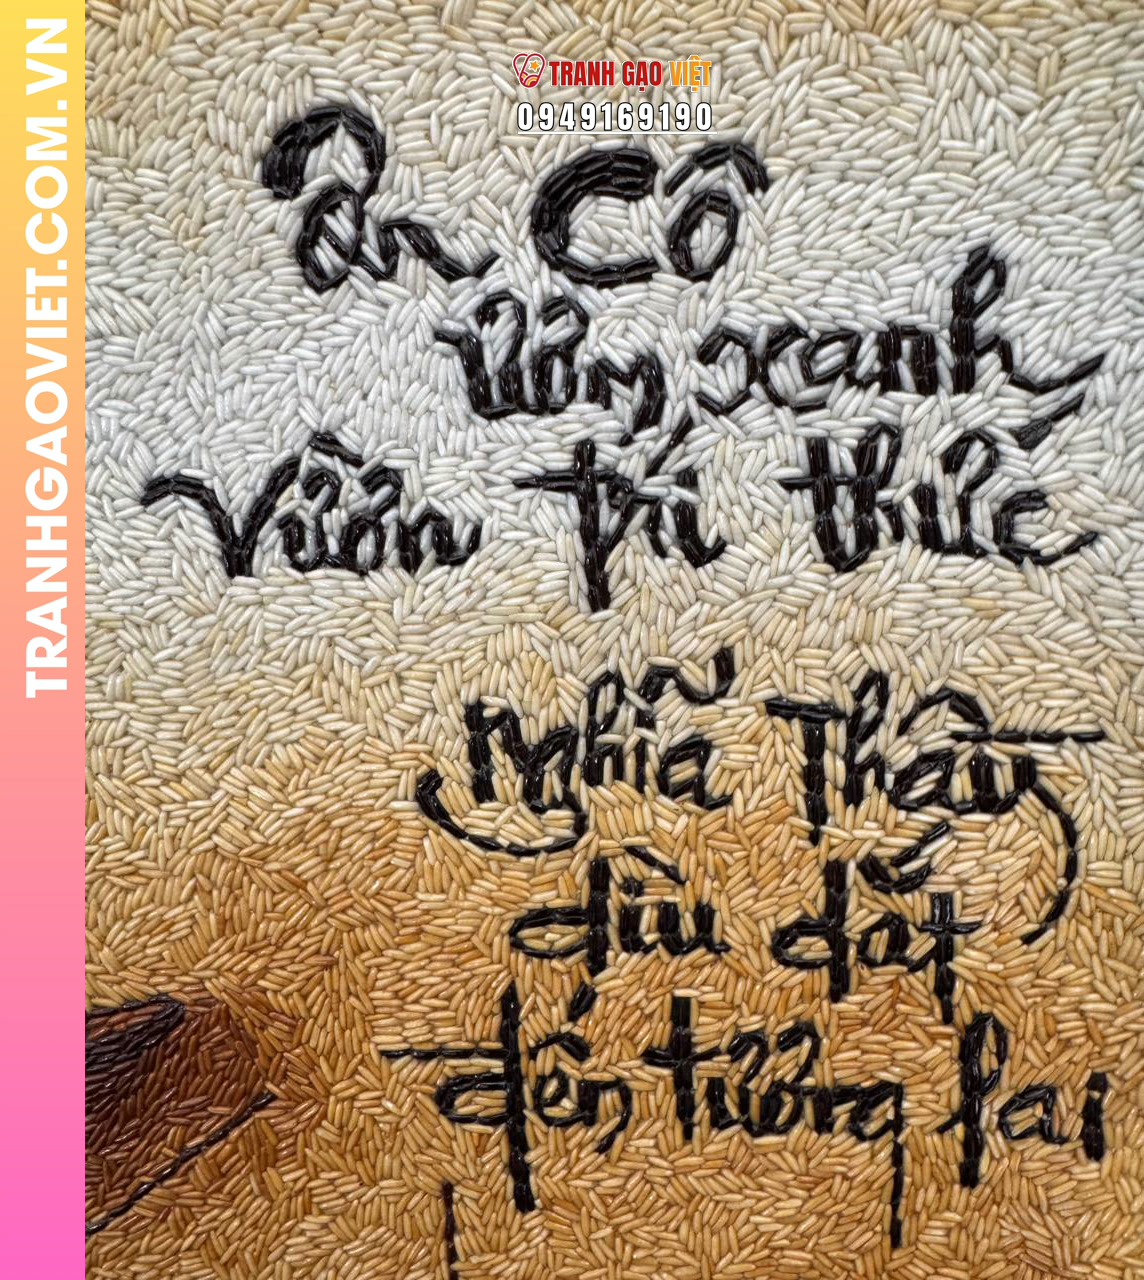 TRANHGAOVIET.COM.VN
TRANH GẠO VIỆT
0949169190
Ân Cô
Ươm xanh
Vườn trí thức
Nghĩa Thầy
dìu dắt
đến tương lai